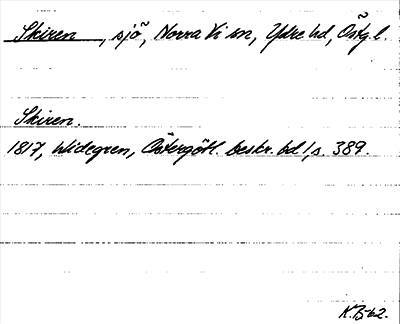 Skiren, sjö, Norra Vi sn, Ydre hd, Östg.l.
Skiren.
1817, Widegren, Östergötl. beskr. bd 1, s. 389.
K.B-62.